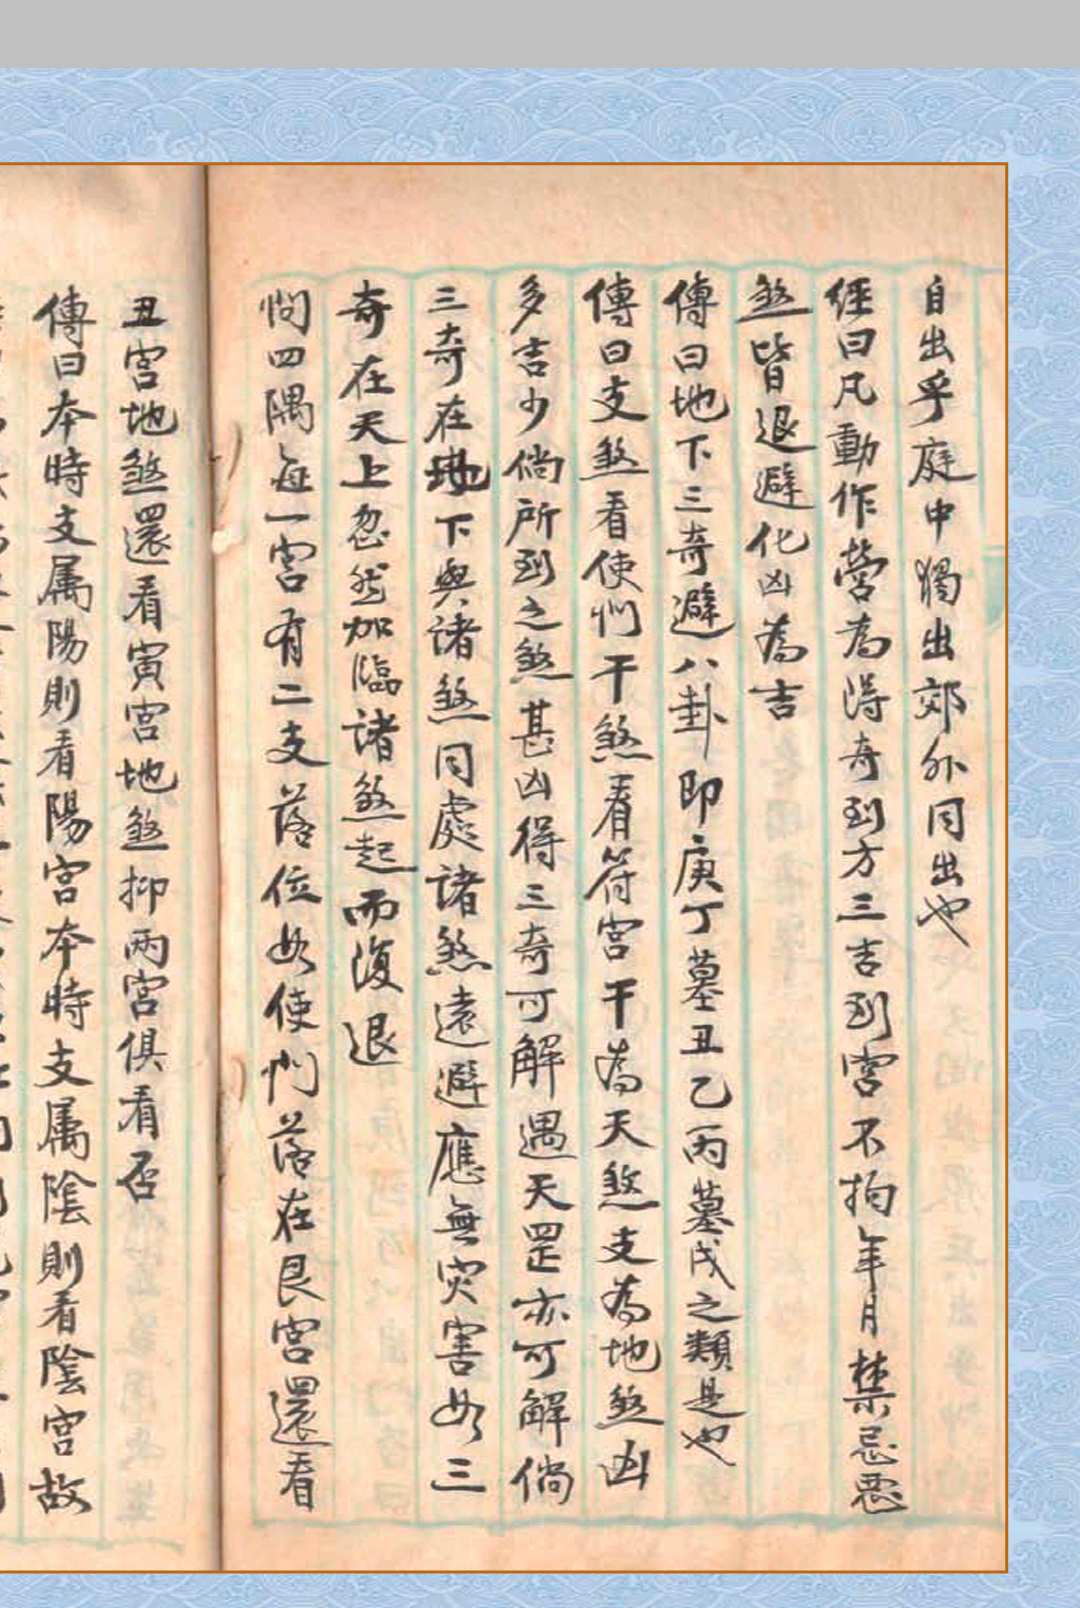 自出乎庭中獨出郊外同出也
經曰凡動作營為得奇到方三吉到宮不拘年月禁忌惡
煞皆退避化凶為吉
傳曰地下三奇避八卦即庚丁墓丑乙丙墓戌之類是也
傳曰支煞看使门干煞看符宮干為天煞支為地煞凶
多吉少倘所到之煞甚凶得三奇可解遇天罡亦可解倘
三奇在地下與諸煞同處諸煞遠避應無灾害如三
奇在天上忽然加臨諸煞起而復退
问四隅每一宮有二支落位如使门落在艮宮還看
丑宮地煞還看寅宮地煞抑兩宮俱看否
傳曰本時支属陽則看陽宮本時支属陰則看陰宮故